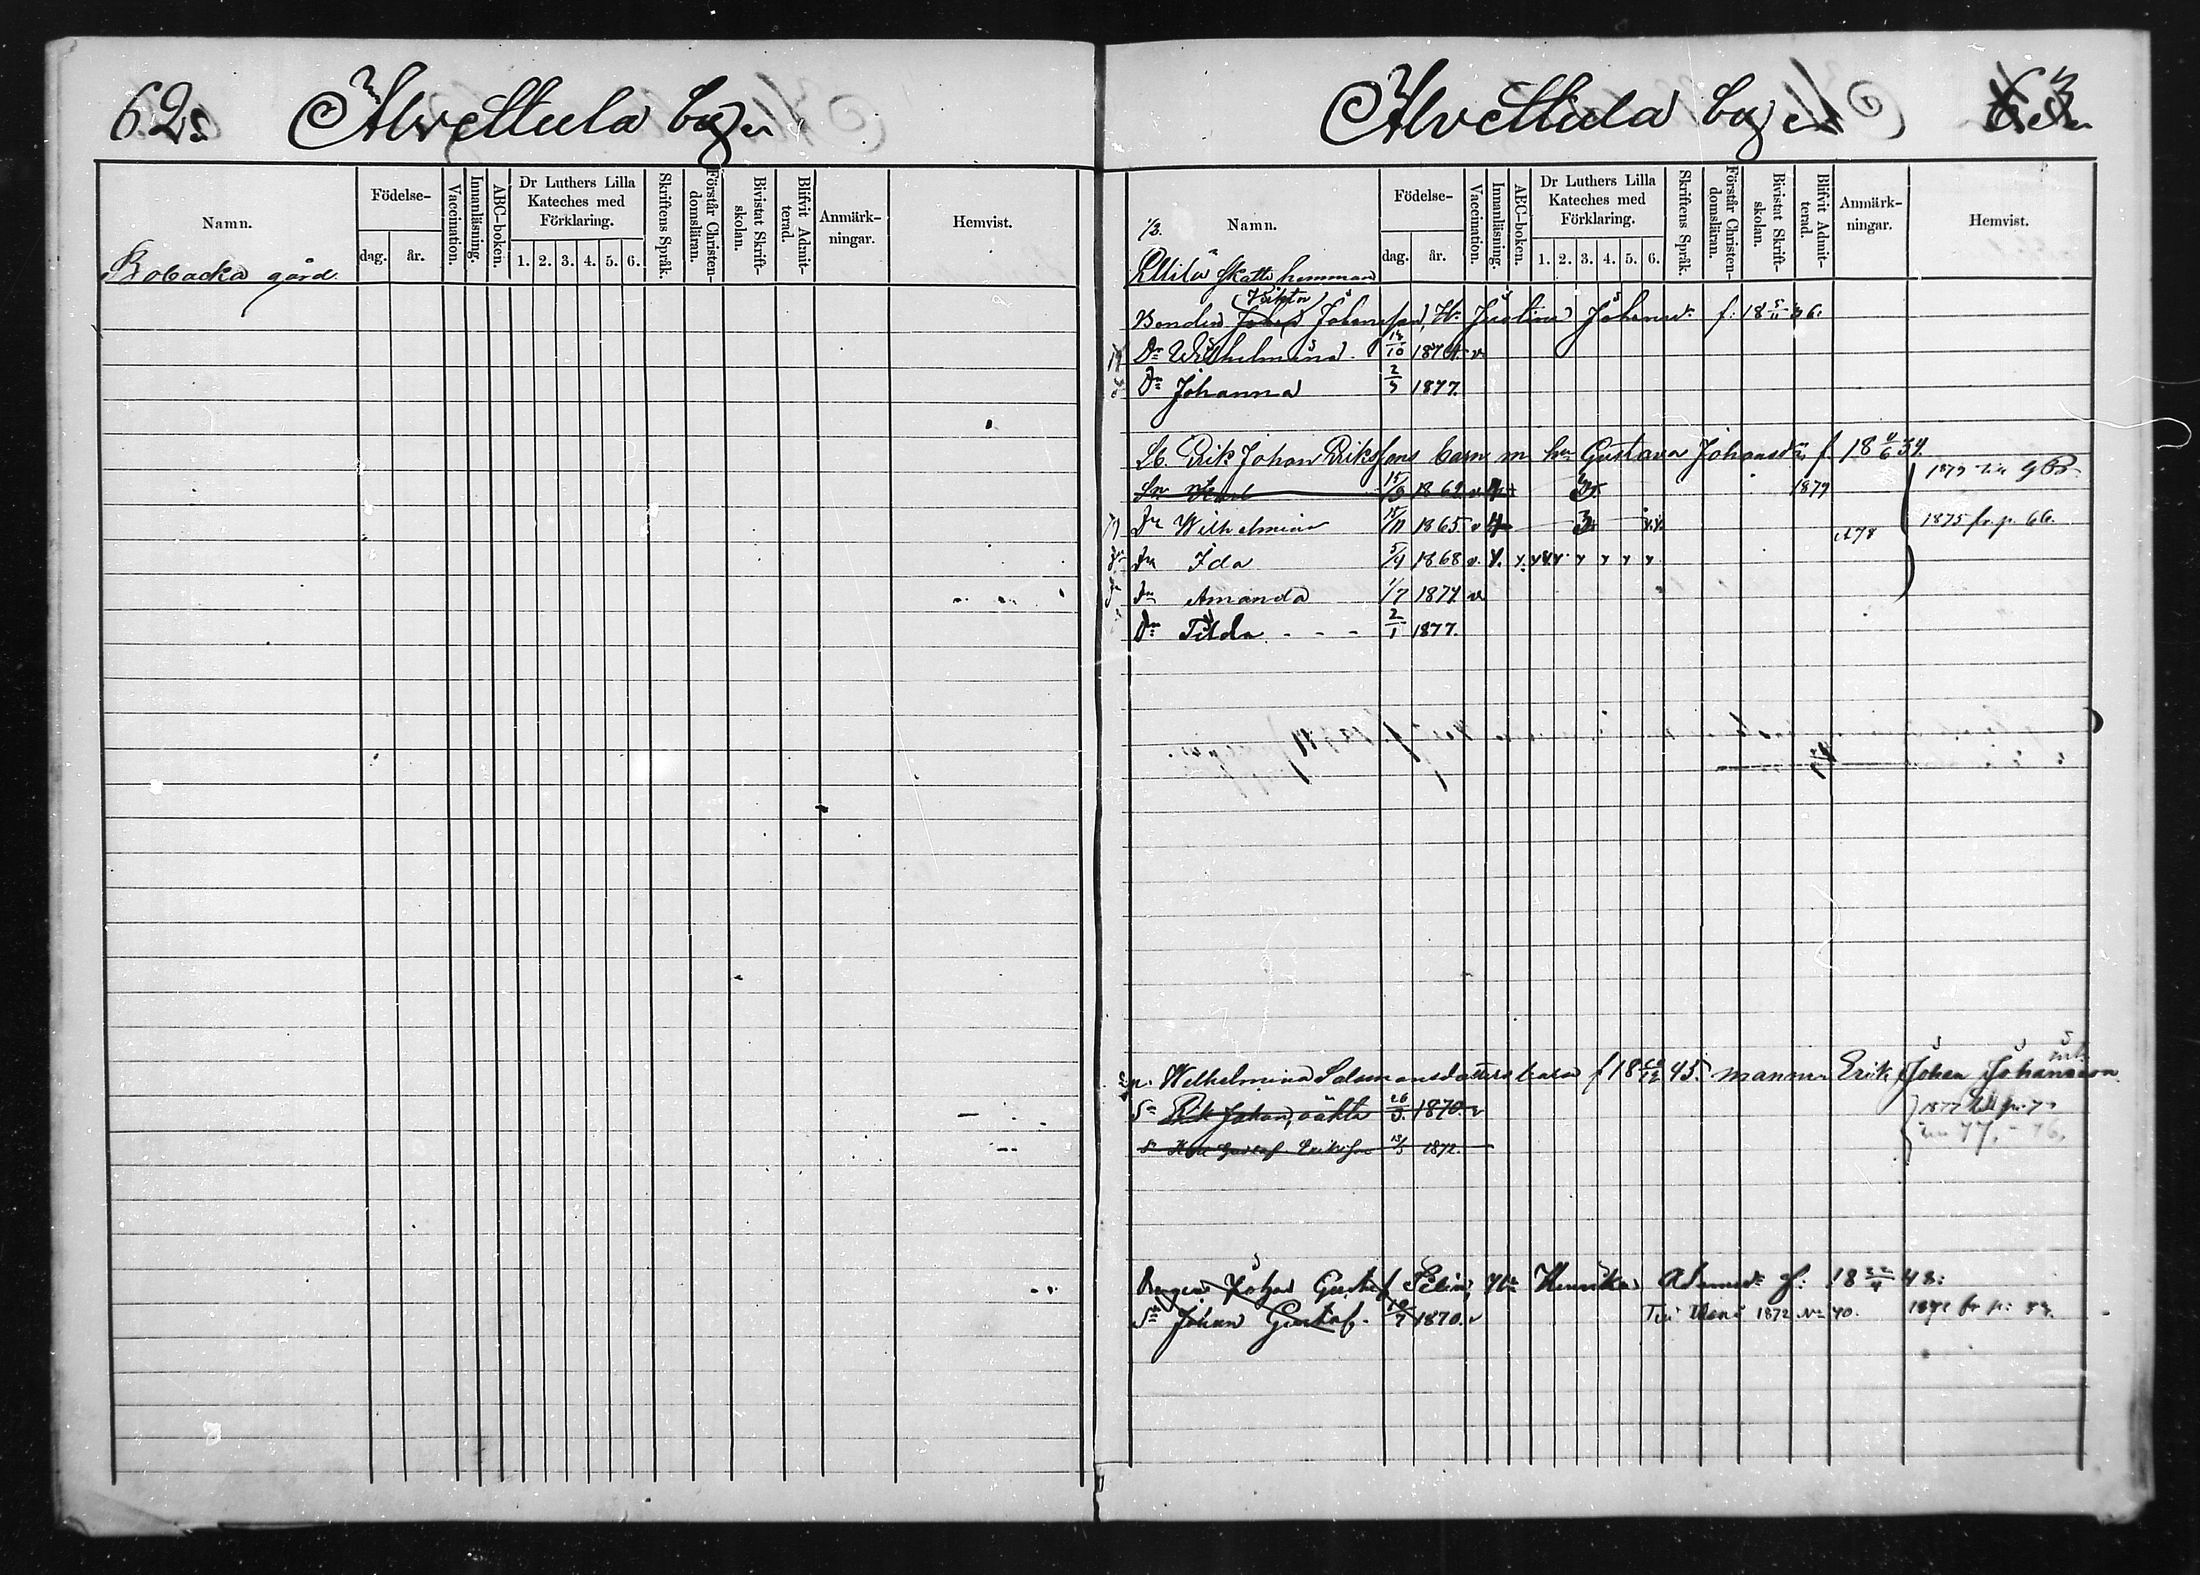 62.
Alvettula by
Namn.
Födelse-
dag.
år.
Vaccination.
Innanläsning.
ABC-boken.
Dr Luthers Lilla
Kateches med
Förklaring.
1. 2. 3. 4. 5. 6.
Skriftens Språk.
Förstår Christen-
domsläran.
Bivistat Skrift-
skolan.
Blifvit Admit-
terad.
Anmärk-
ningar.
Hemvist.
Bobacka gård
Alvettula by
Namn.
Födelse-
dag.
år.
Vaccination.
Innanläsning.
ABC-boken.
Dr Luthers Lilla
Kateches med
Förklaring.
1. 2. 3. 4. 5. 6.
Skriftens Språk.
Förstår Christen-
domsläran.
Bivistat Skrift-
skolan.
Blifvit Admit-
terad.
Anmärk-
ningar.
Hemvist.
1/3.
Skatte hemman
Viktor
Bonden Johansson, Hu Justina Johansdr f. 18 5/11 46.
Dr Wilhelmina 14/10 1874 v
Dr Johanna 2/9 1877.
Erik Johan Erikssons barn m hu Gustava Johansdr f. 18 11/6 34.
1862 v 1879 1879 till
Dr Wilhelmina 15/11 1865 v 3 1875 fr. p. 66.
Dr Ida 5/4 1868 v.
Dr Amanda 1/7 1874 v
Dr Tilda - - - 2/1 1877.
Wilhelmina Salomonsdotters barn f 18 45. mannen Erik Johan Johansson
Sn Erik Johan, oäkta 26/3 1870. v 1877 till
Sn Gustaf Eriksson 13/5 1872. 77, - 76,
Drengen Johan Gustaf Hu Henrika Adamsdr f: 18 22/4 48:
Sn Johan Gustaf. 10/7 1870. v 1872 No 40. fr p: